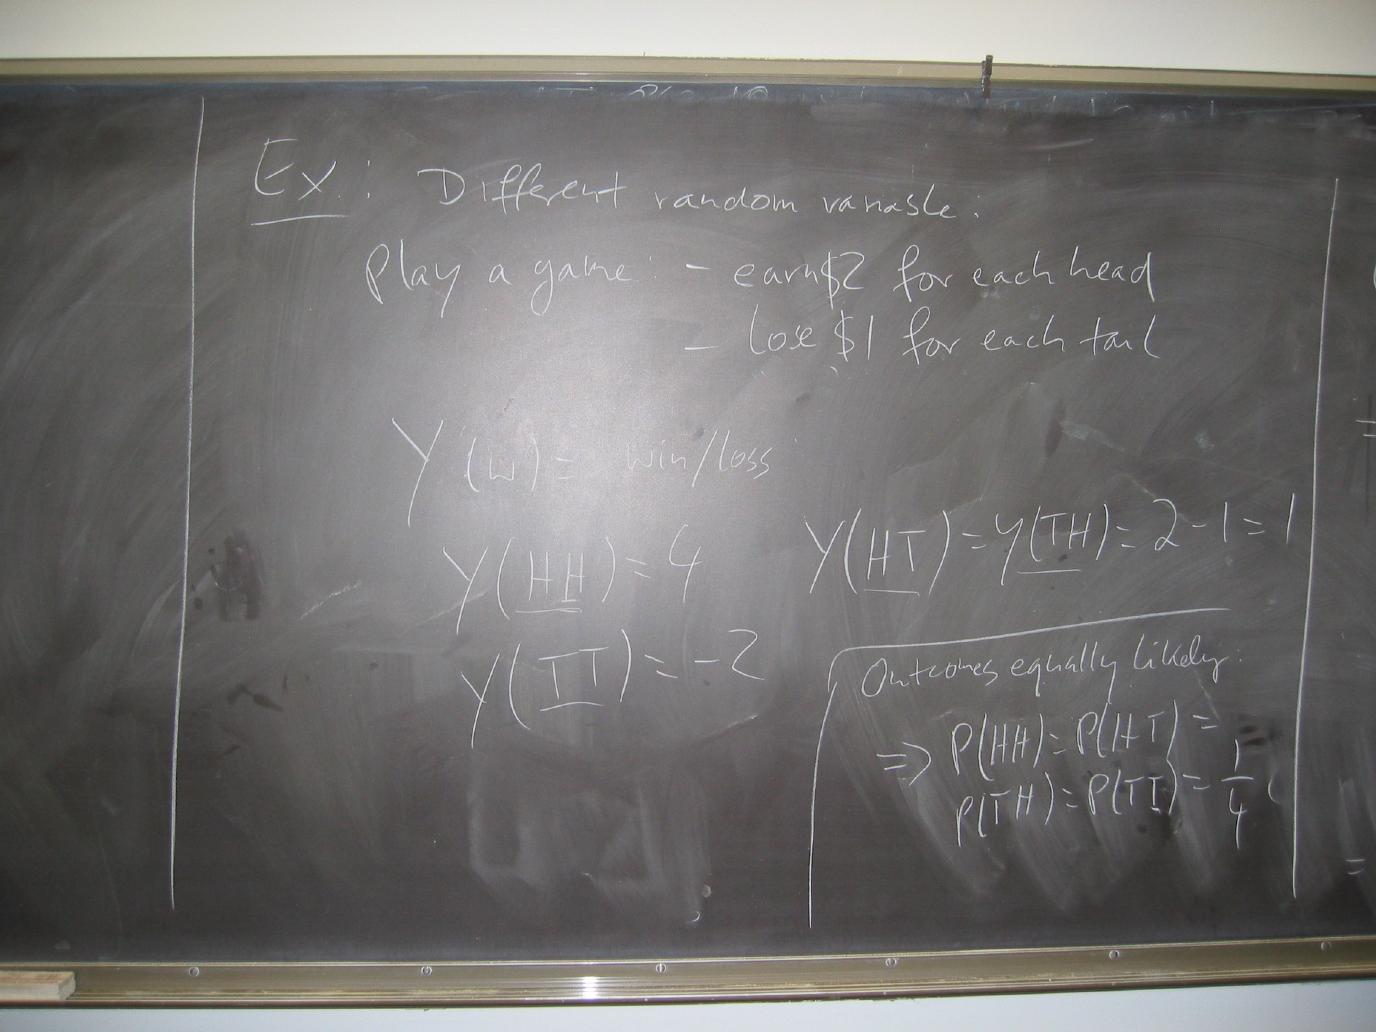 Ex: Different random variable:
Play a game: - earn $2 for each head
- lose $1 for each tail
Y(w) = win/loss
Y(HH) = 4
Y(HT) = Y(TH) = 2 - 1 = 1
Y(TT) = -2
Outcomes equally likely:
⇒ P(HH) = P(HT) =
P(TH) = P(TT) = 1/4